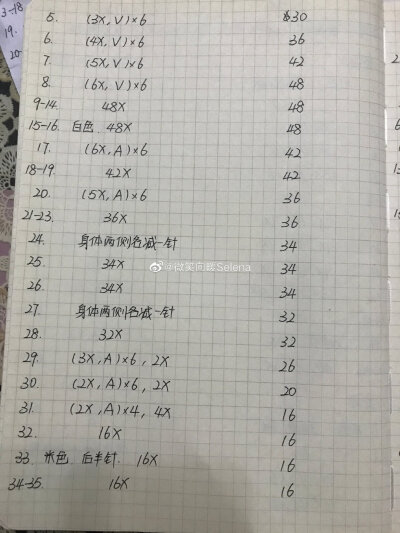 3-18
19.
20
5. (3X, V)×6 30
6. (4X, V)×6 36
7. (5X, V)×6 42
8. (6X, V)×6 48
9-14. 48X 48
15-16. 白色. 48X 48
17. (6X, A)×6 42
18-19. 42X 42
20. (5X, A)×6 36
21-23. 36X 36
24. 身体两侧各减一针 34
25. 34X 34
26. 34X 34
27. 身体两侧各减一针 32
28. 32X 32
29. (3X, A)×6, 2X 26
30. (2X, A)×6, 2X 20
31. (2X, A)×4, 4X 16
32. 16X 16
33. 米色. 后半针. 16X 16
34-35. 16X 16
@微笑向暖Selena